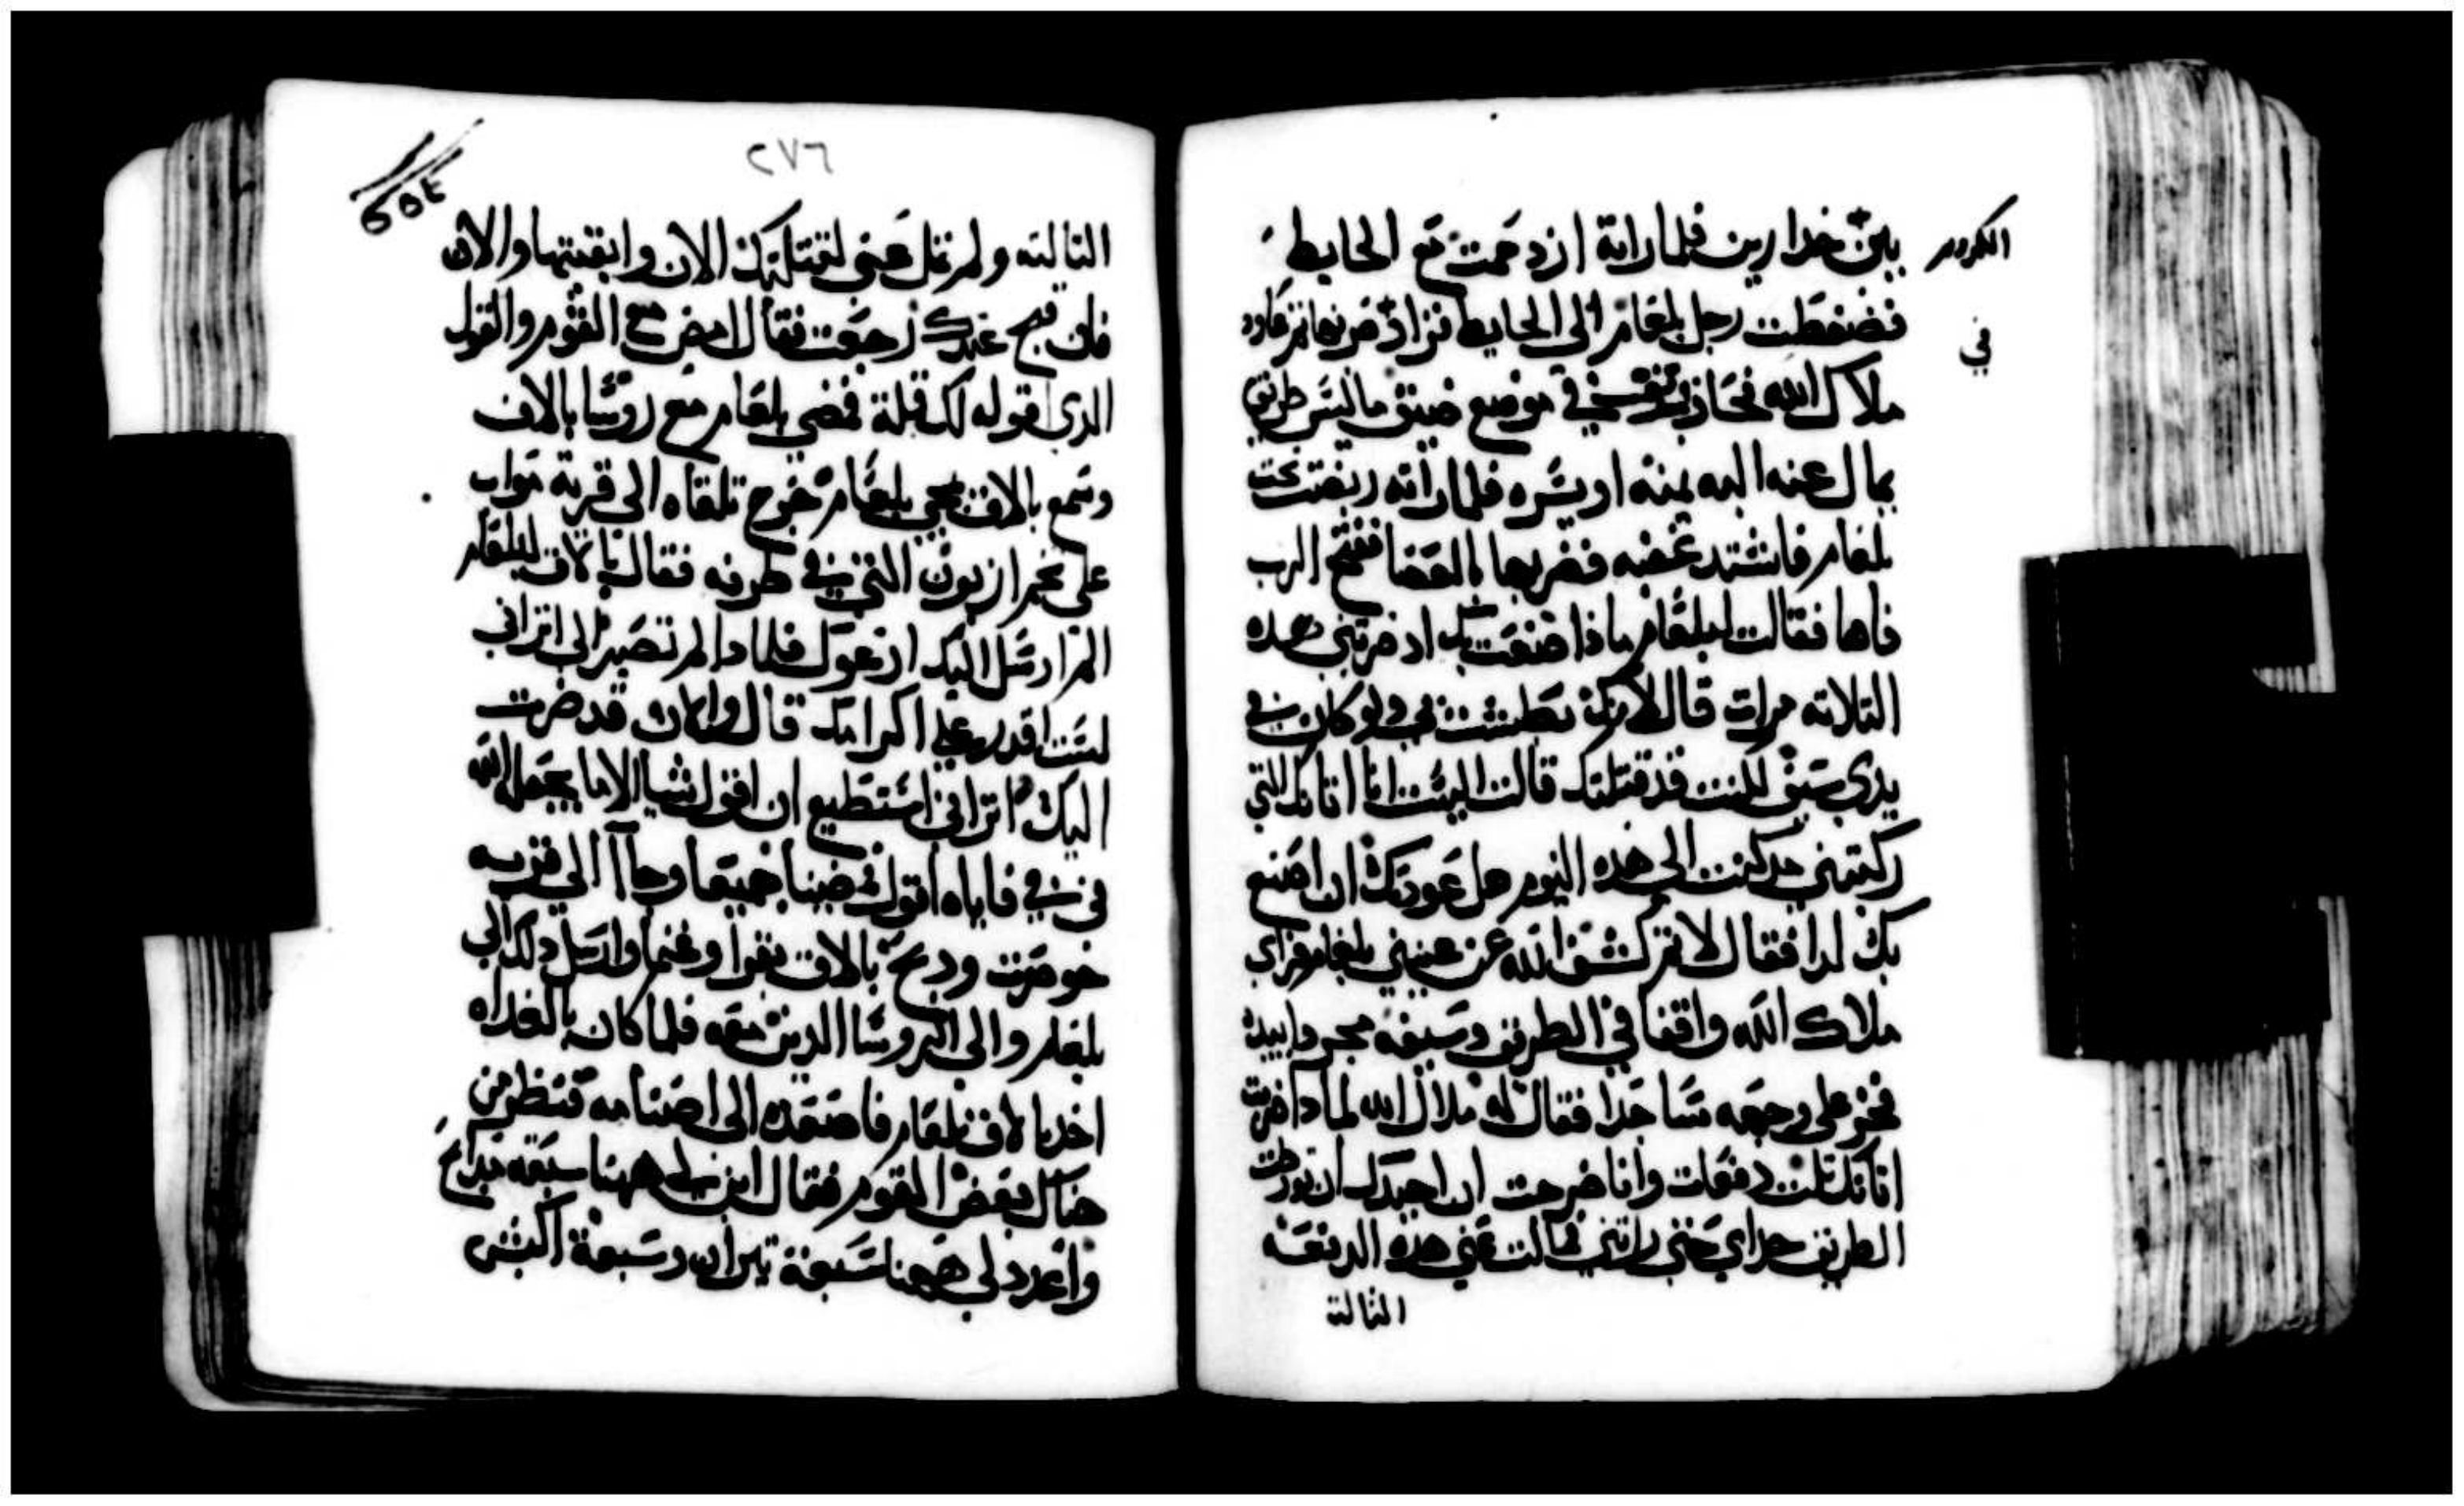 الكروم
في
بين خدارين فلما راته ازدحمت مع الحايط
فضغطت رجل بلعام الى الحايط فزاد ضربها ثم عاود
ملاك الله فجاز في موضع ضيق ماليس طريق
يمال عنه اليه يمنه او يسره فلما راته ربضت تحت
بلعام فاشتد غضبه فضربها بالعصا ففتح الرب
فاها فقالت لبلعام ماذا صنعت بك اذ ضربتني هده
التلاته مرات قال لانك بطشت بي ولو كان في
يدي سيف لكنت قد قتلتك قالت اليست انا اتانك التي
ركبتني مد كنت الى هده اليوم هل عودتك ان اصنع
بك لدا فقال لا ثم كشف الله عن عيني بلعام فراي
ملاك الله واقفا في الطريق وسيفه مجردا بيده
فخر على وجهه ساجدا فقال له ملاك الله لمادا ضربت
اتانك تلت دفعات وانا خرجت ان احيدك ان تورطت
الطريق حداي حتى راتني فمالت عني هده الدفعه
التالته
٢٧٦
التالته ولم تمل عني لقتلتك الان وابقيتها والان
فان قبح عندك رجعت فقال امض مع القوم والقول
الدي اقوله لك قبلة فمضي بلعام مع روسا بالاق
وسمع بالاق بمجي بلعام خرج تلقاه الى قرية مواب
على تخم ارنون التي في طرفه فقال بالاق لبلعام
الم ارسل اليك ادعوك فلمادا لم تصير الي اتراني
لست اقدر على اكرامك قال والان قد ضرت
اليك اتراني استطيع ان اقول شيا الا ما يجعله الله
في في فاياه اقول فمضيا جميعا وجاآ الي قريه
حوصرت ودبح بالاق بقرا وغنما وارسل دلك الي
بلعام والى الروسا الدين معه فلما كان بالغداه
اخد بالاق بلعام فاصعده الى اصنامه فنظر من
هناك بعض القوم فقال ابن لي ههنا سبعه مدابح
واعدد لي ههنا سبعة تيران وسبعة اكبش